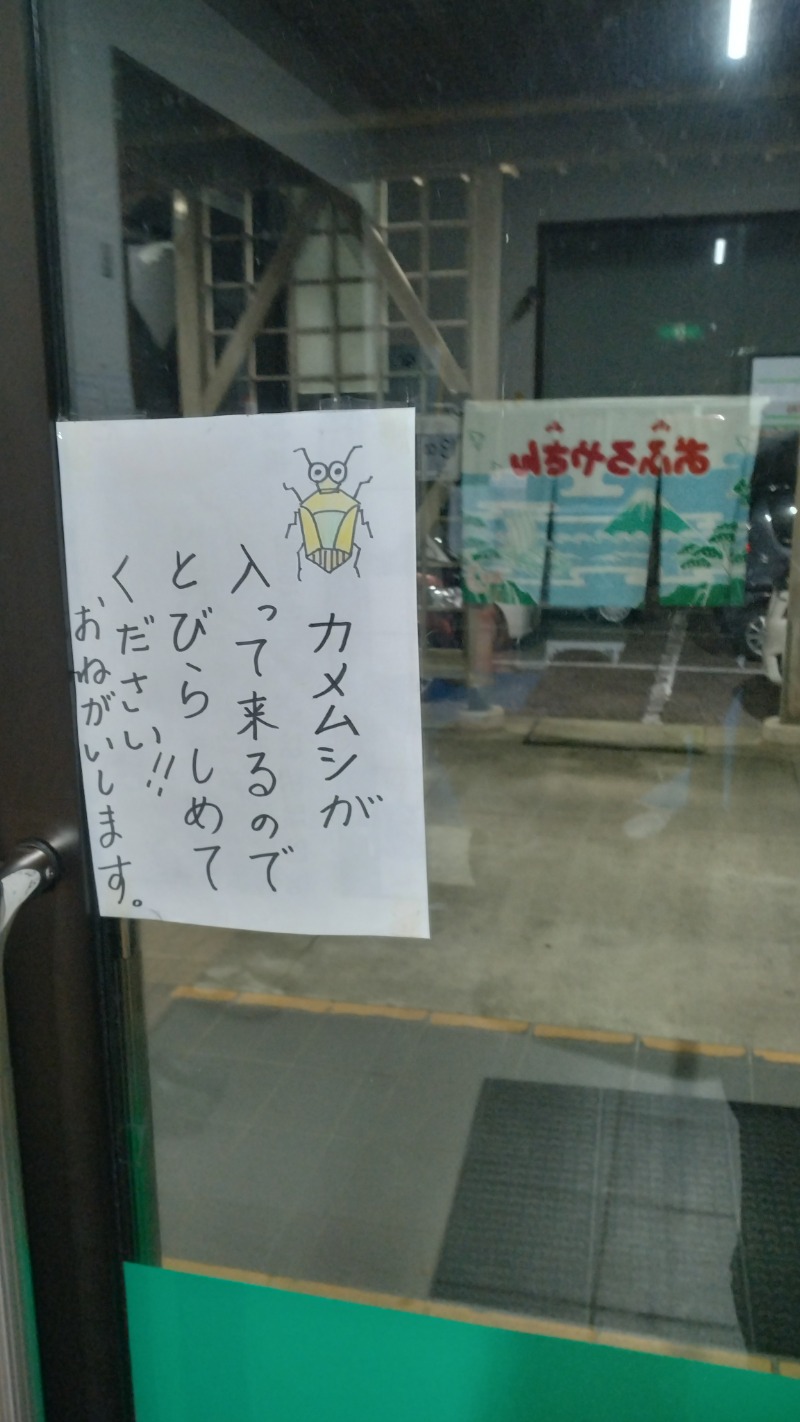 カメムシが
入って来るので
とびらしめて
ください!!
おねがいします。
おふろやさん